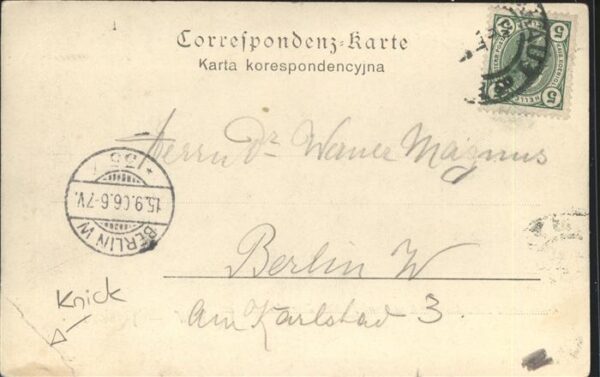 Correſpondenz-Karte
Karta korespondencyjna
5 5
5
Herrn Dr. Magnus
BERLIN W
15.9.06.6-7V.
*35
Berlin W
am Karlsbad 3.
Knick